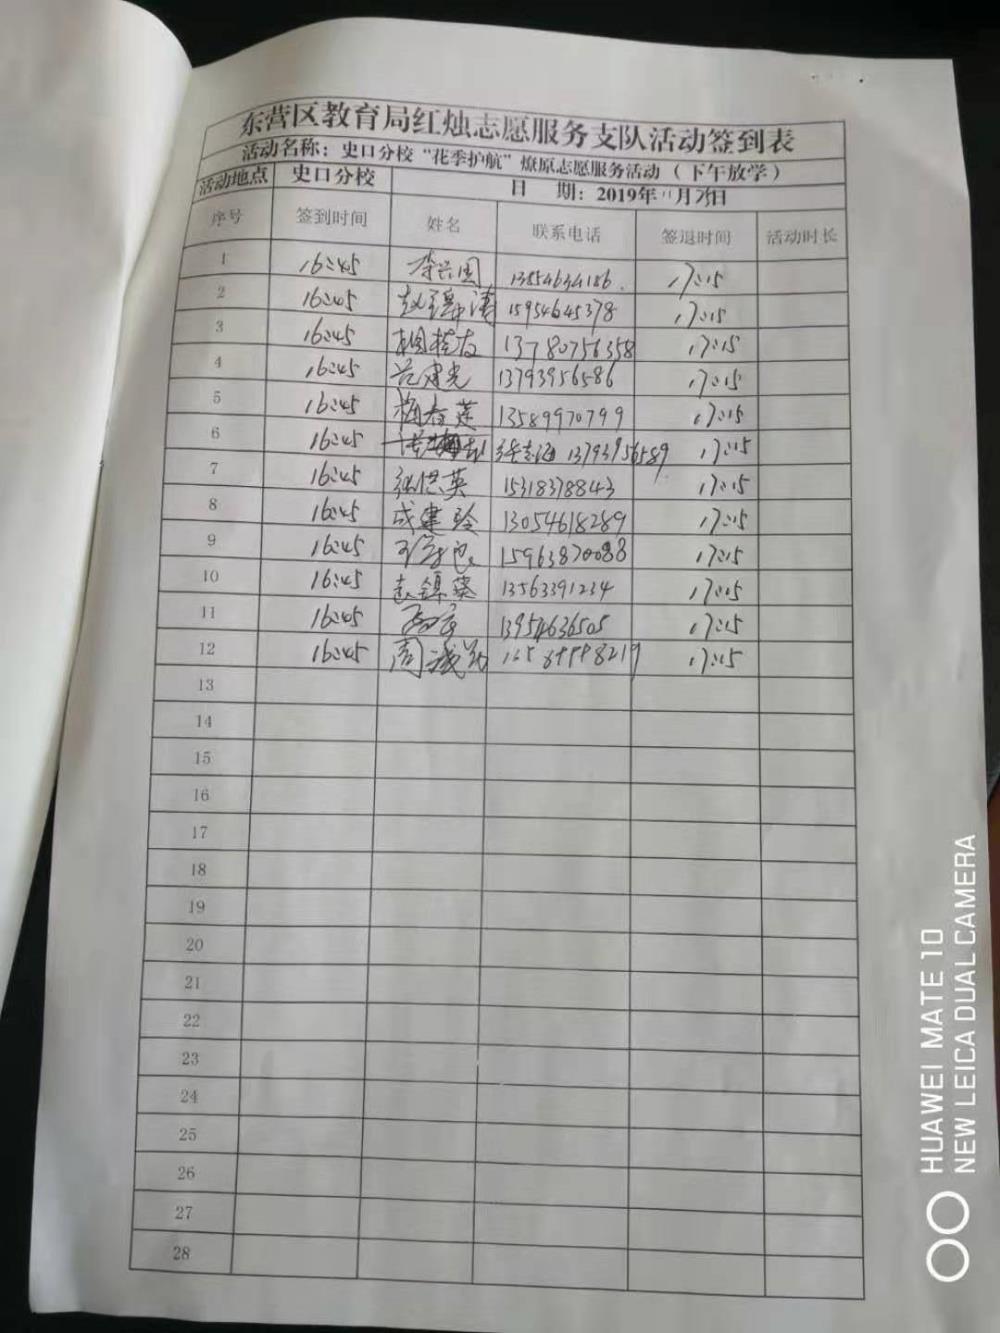 东营区教育局红烛志愿服务支队活动签到表
活动名称：史口分校“花季护航”燎原志愿服务活动（下午放学）
活动地点 史口分校 日 期：2019年11月 日
序号 签到时间 姓名 联系电话 签退时间 活动时长
1 16:45 李兴国 13854634186 17:15
2 16:45 15954645378 17:15
3 16:45 13780756358 17:15
4 16:45 范建光 13793956586 17:15
5 16:45 梅春莲 13589970799 17:15
6 16:45 13793956589 17:15
7 16:45 张洪英 15318378843 17:15
8 16:45 成建玲 13054618289 17:15
9 16:45 15963870088 17:15
10 16:45 13563391234 17:15
11 16:45 13954636505 17:15
12 16:45 周 17:15
13
14
15
16
17
18
19
20
21
22
23
24
25
26
27
28
HUAWEI MATE 10
NEW LEICA DUAL CAMERA